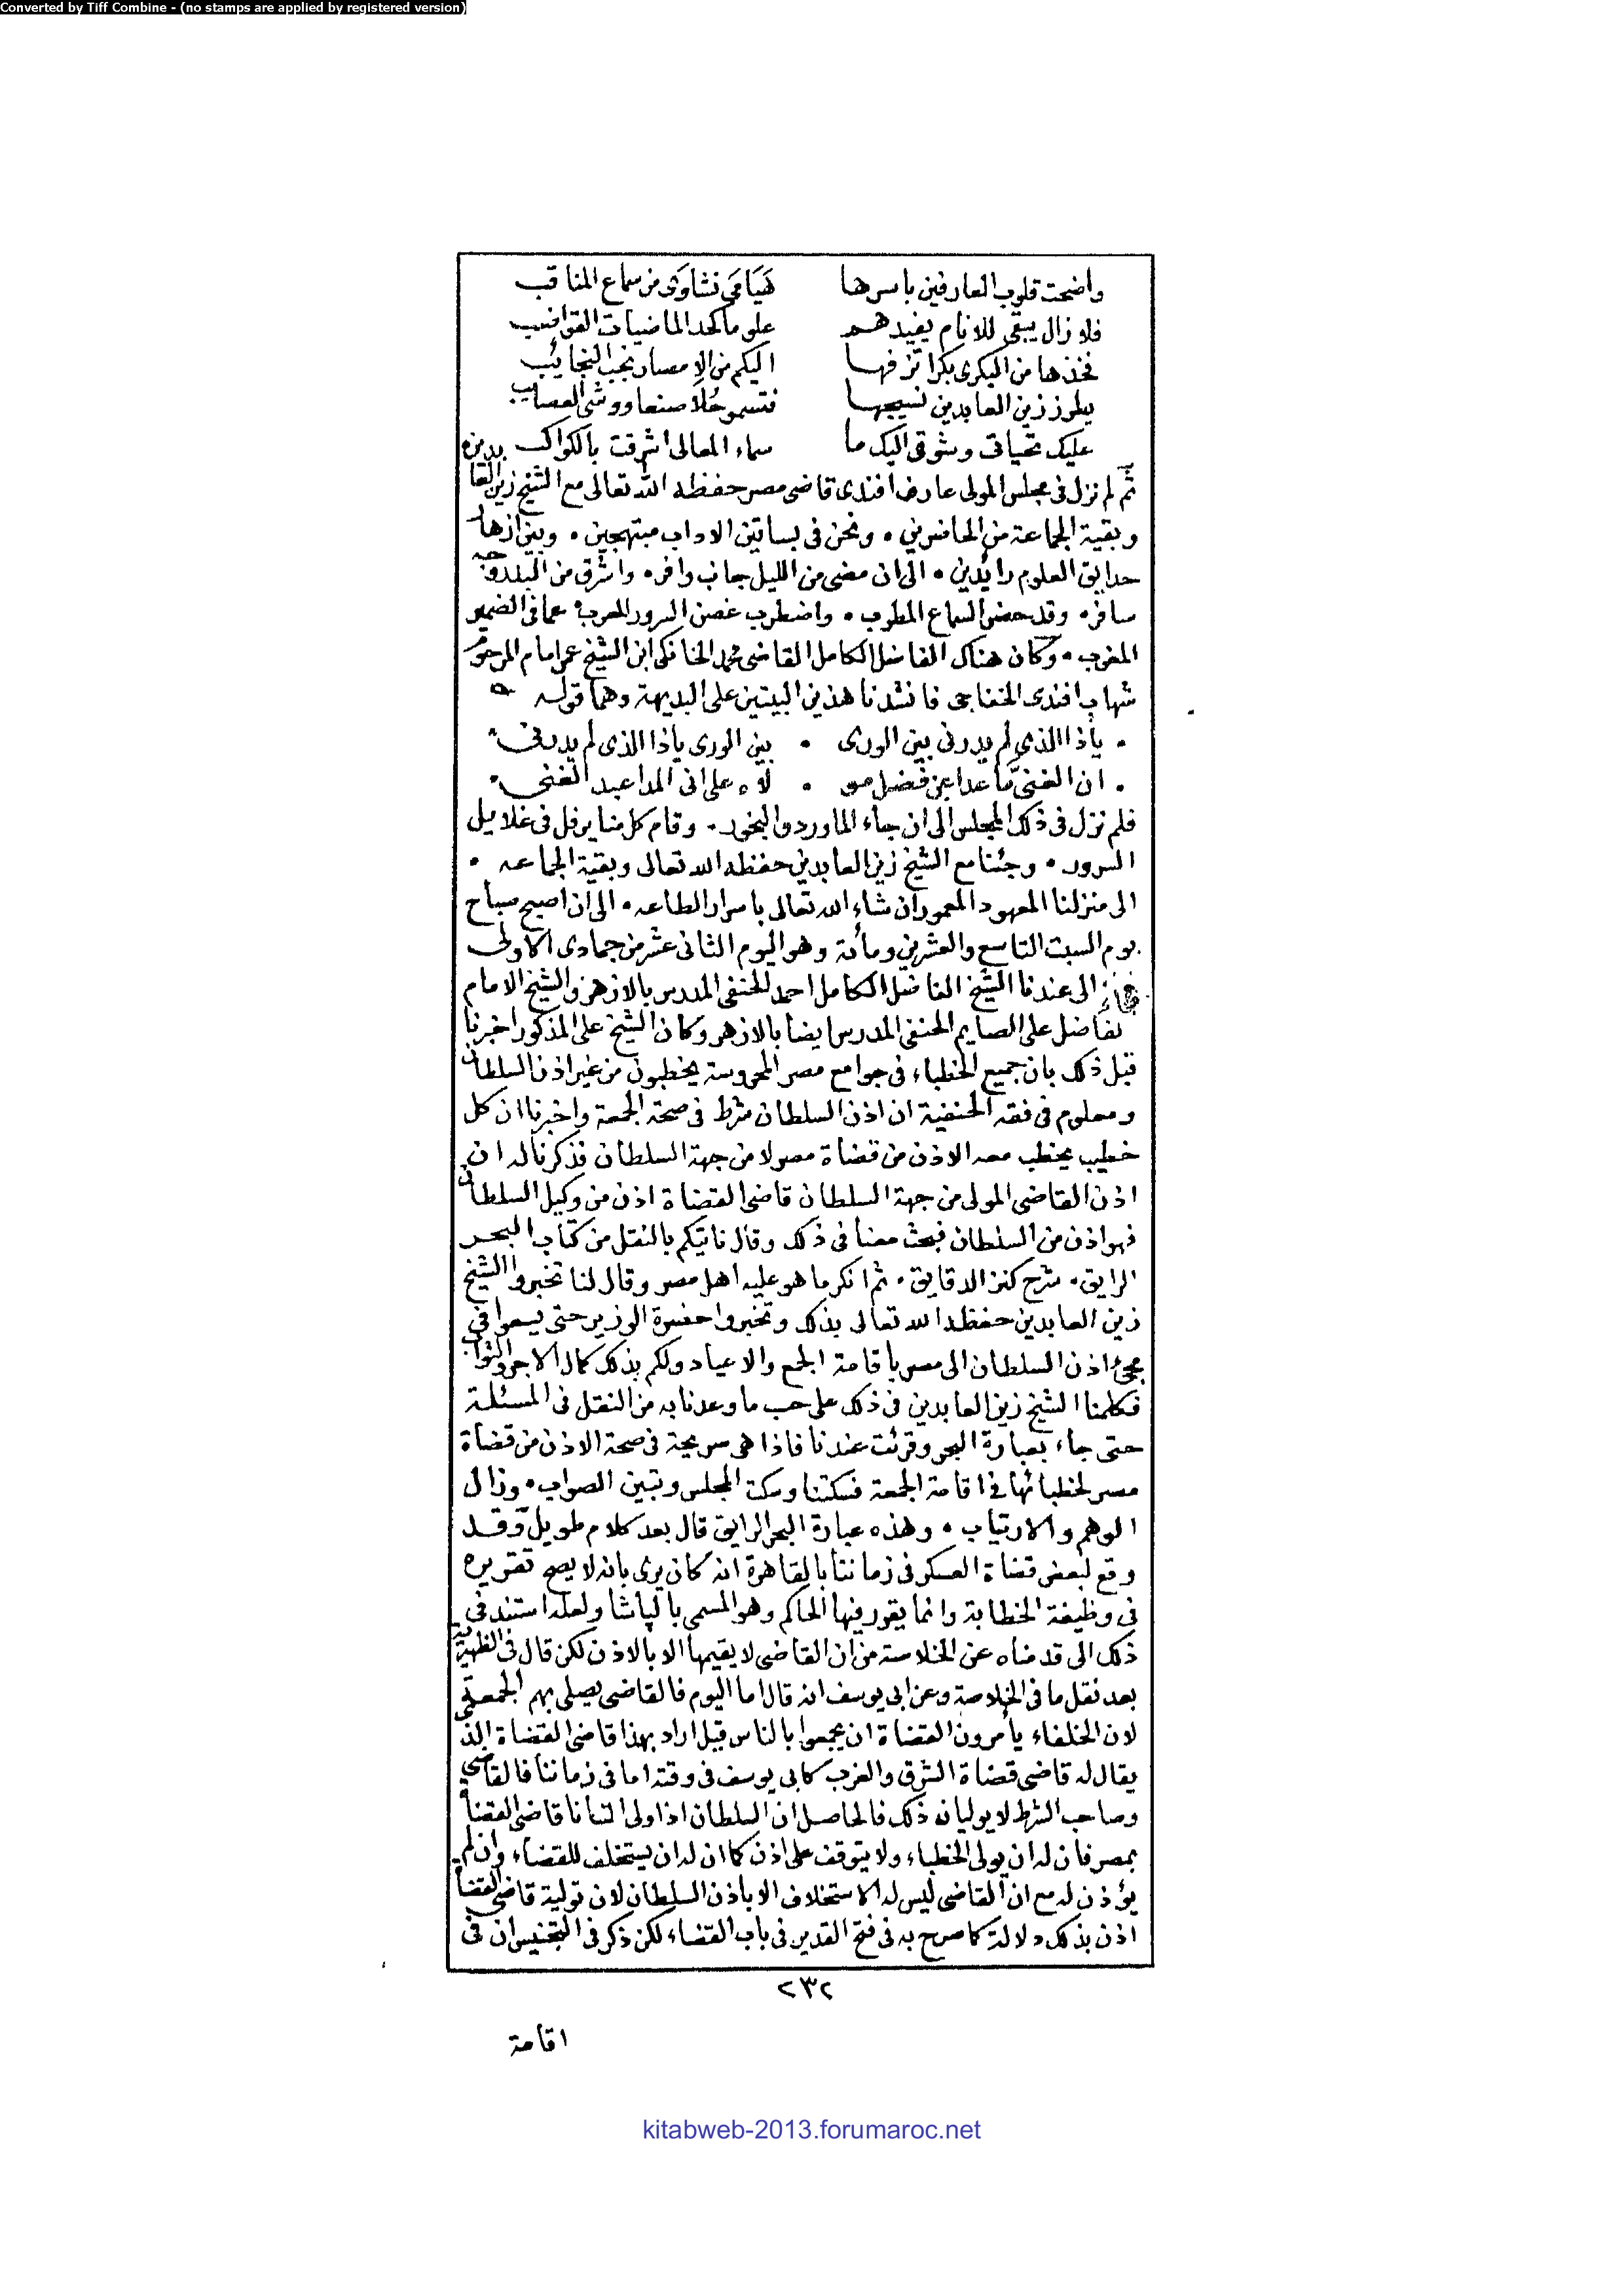 Converted by Tiff Combine - (no stamps are applied by registered version)
واضحت قلوب العارفين باسرها هيامى نشاوى من سماع المناقب
فلا زال يبقى للانام يفيدهم علوما كحد الماضيات القواضب
فخذها من البكرى بكرا تزفها اليكم من الامصار نجب النجائب
يطرز زين العابدين نسيجها فتسمو حُلا صنعا ووشى العصايب
عليك تحياتى وشوقى اليك ما سماء المعالى اشرقت بالكواكب
ثم لم نزل فى مجلس المولى عارف افندى قاضى مصر حفظه الله تعالى مع الشيخ زين العابدين
وبقية الجماعة من الحاضرين • ونحن فى بساتين الاداب مبتهجين • وبين ازهار
حدايق العلوم رائدين • الى ان مضى من الليل جانب وافر • واشرق من البدر وجه
سافر • وقد حضر السماع المطرب • واضطرب غصن السرور المعرب عما فى الضمير
المغرب • وكان هناك الفاضل الكامل القاضى محمد الخانكى ابن الشيخ عمر امام المرحوم
شهاب افندى الخفاجى فانشدنا هذين البيتين على البديهة وهما قوله
• ياذا الذى لم يدرنى بين الورى • بين الورى ياذا الذى لم يدرنى •
• ان الغنىّ ما عدا عن فضل مو • لاه على انى المدا عبد الغنى •
فلم نزل فى ذلك المجلس الى ان جاء الماورد والبخور • وقام كل منا يرفل فى غلايل
السرور • وجئنا مع الشيخ زين العابدين حفظه الله تعالى وبقية الجماعه •
الى منزلنا المعهود المعمور ان شاء الله تعالى باسرار الطاعه • الى ان اصبح صباح
يوم السبت التاسع والعشرين ومأئة وهو اليوم الثانى عشر من جمادى الاولى
فجاء الى عندنا الشيخ الفاضل الكامل احمد الحنفى المدرس بالازهر والشيخ الامام
لفاضل على الصايم الحنفى المدرس ايضا بالازهر وكان الشيخ على المذكور اخبرنا
قبل ذلك بان جميع الخطباء فى جوامع مصر المحروسة يخطبون من غير اذن السلطان
ومعلوم فى فقه الحنفية ان اذن السلطان شرط فى صحة الجمعة واخبرنا ان كل
خطيب يخطب معه الاذن من قضاة مصر لا من جهة السلطان فذكرنا له ان
اذن القاضى المولى من جهة السلطان قاضى القضاة اذن من وكيل السلطان
فهو اذن من السلطان فبحث معنا فى ذلك وقال نأتيكم بالنقل من كتاب البحر
الرايق • شرح كنز الدقايق • ثم انكر ما هو عليه اهل مصر وقال لنا تخبروا الشيخ
زين العابدين حفظه الله تعالى بذلك وتخبروا حضرة الوزير حتى يسعوا فى
مجئ اذن السلطان الى مصر باقامة الجمع والاعياد ولكم بذلك كمال الاجر والثواب
فكلمنا الشيخ زين العابدين فى ذلك على حسب ما وعدنا به من النقل فى المسئلة
حتى جاء بعبارة البحر وقرئت عندنا فاذا هى صريحة فى صحة الاذن من قضاة
مصر لخطبائها فى اقامة الجمعة فسكتنا وسكت المجلس وتبين الصواب • وزال
الوهم والارتياب • وهذه عبارة البحر الرايق قال بعد كلام طويل وقد
وقع لبعض قضاة العسكر فى زماننا بالقاهرة انه كان يرى بانه لا يصح تقريره
فى وظيفة الخطابة وانما يقرر فيها الحاكم وهو المسمى بالباشا ولعله استند فى
ذلك الى قدمناه عن الخلاصة من ان القاضى لا يقيمها الا بالاذن لكن قال فى الظهيرية
بعد نقل ما فى الخلاصة وعن ابى يوسف انه قال اما اليوم فالقاضى يصلى بهم الجمعة
لان الخلفاء يأمرون القضاة ان يجمعوا بالناس قيل اراد بهذا قاضى القضاة الذى
يقال له قاضى قضاة الشرق والغرب كابى يوسف فى وقته اما فى زماننا فالقاضى
وصاحب الشرط لا يوليان ذلك فالحاصل ان السلطان اذا ولى انسانا قاضى القضاة
بمصر فان له ان يولى الخطباء ولا يتوقف على اذن كما ان له ان يستخلف للقضاء وان لم
يؤذن له مع ان القاضى ليس له الاستخلاف الا باذن السلطان لان تولية قاضى القضاة
اذن بذلك دلالة كما صرح به فى فتح القدير فى باب القضاء لكن ذكر فى التجنيس ان فى
٢٣٢
اقامة
kitabweb-2013.forumaroc.net